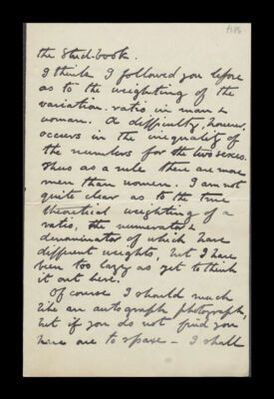 the Stud-book.
I think I followed you before
as to the weighting of the
variation-ratio in man &
woman. A difficulty, however,
occurs in the inequality of
the numbers for the two sexes.
Thus as a rule there are more
men than women. I am not
quite clear as to the true
theoretical weighting of a
ratio, the numerator &
denominator of which have
different weights, but I have
been too lazy as yet to think
it out here.
Of course I should much
like an autograph photograph,
but if you do not find you
have one to spare – I shall